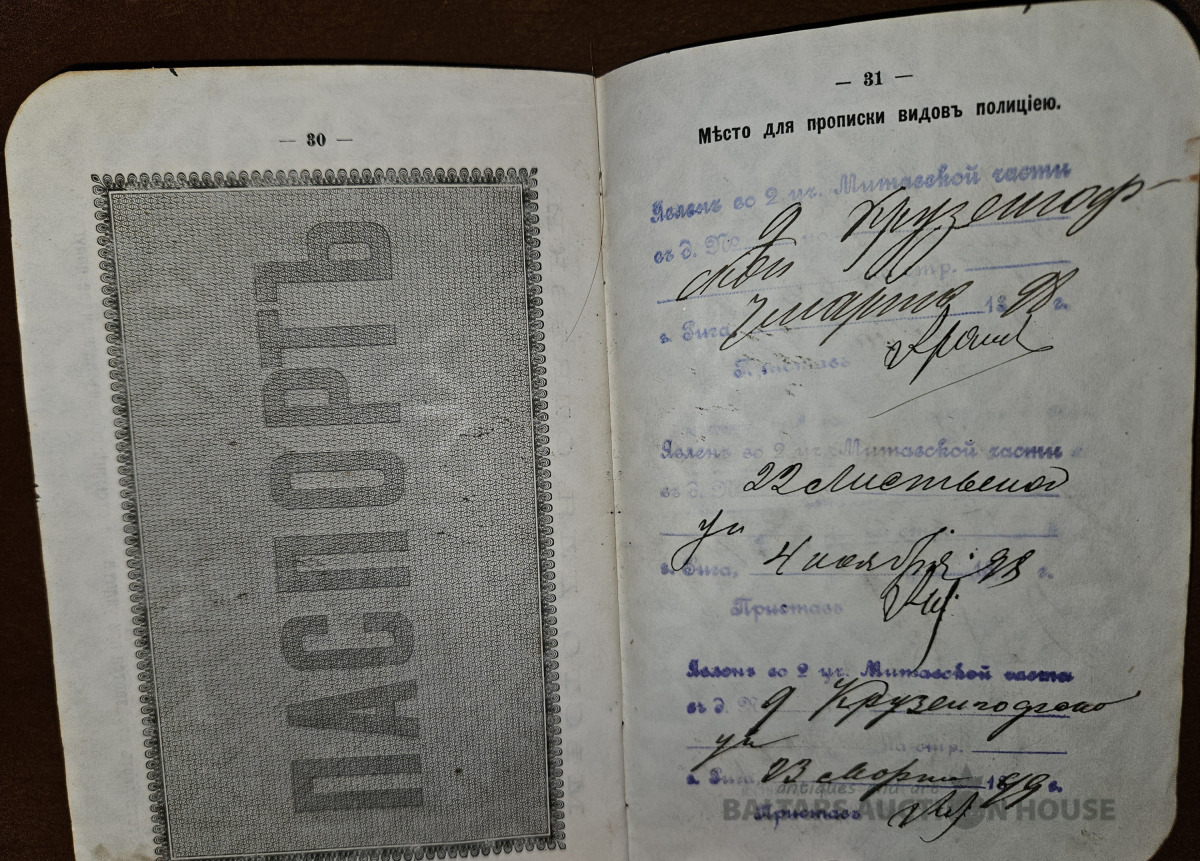 — 30 —
ПАСПОРТЪ
— 31 —
Мѣсто для прописки видовъ полиціею.
Явленъ во 2 уч. Митавской части
въ д. № 9 Крузенгоф-
ской стр.
г. Рига, 7 марта 1898 г.
Приставъ
Явленъ во 2 уч. Митавской части
въ д. № 22 Листвennой
ул
г. Рига, 4 ноября 1898 г.
Приставъ
Явленъ во 2 уч. Митавской части
въ д. № 9 Крузенгофской
ул На стр.
г. Рига 23 Марта 1899 г.
Приставъ
antiques and art
BALTARS AUCTION HOUSE